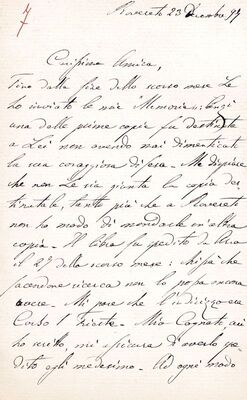 7
Rovereto 23 Dicembre 97
Carissima Amica,
Fino dalla fine dello scorso mese Le
ho inviato le mie Memorie; anzi
una delle prime copie fu destinata
a Lei non avendo mai dimenticata
la sua coraggiosa difesa. Mi dispiace
che non Le sia giunta la copia des
tinatale, tanto più che a Rovereto
non ho modo di mandarle un'altra
copia. Il libro fu spedito da
il 27 dello scorso mese: chissà che
facendone ricerca non lo possa ancora
avere. Mi pare che l'indirizzo era
Corso Trieste. Mio Cognato, cui
ho scritto, mi assicura di averlo spe
dito egli medesimo. Ad ogni modo